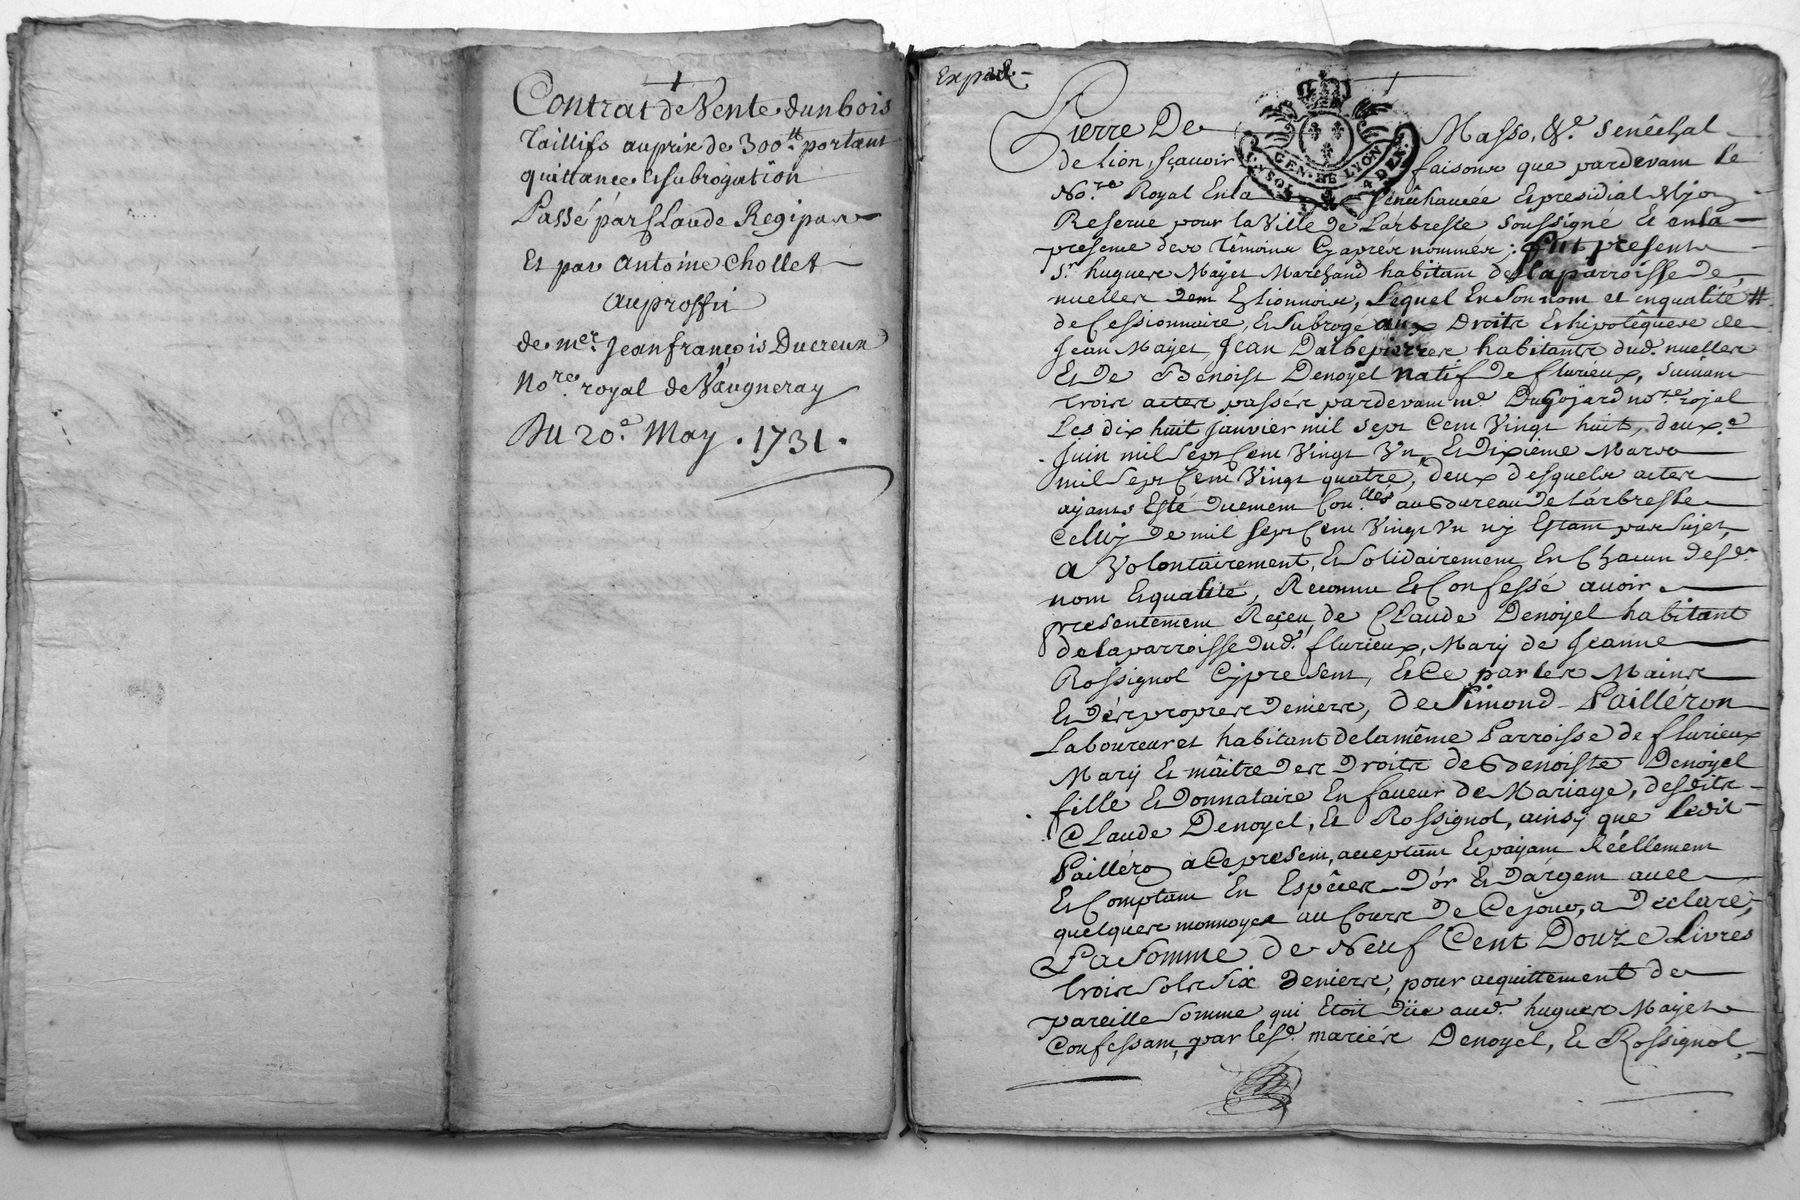 Contrat de Vente dun bois
Taillifs au prix de 300tt. portant
quittance Et subrogation
Passé par Claude Regipas
Et par Antoine Chollet
au proffit
de mer. Jean françois Ducreux
No.re royal de Vaugneray
Du 20.e May . 1731 .
Exped.
Pierre De Masso, &c. senêchal
de Lion, sçavoir faisons que pardevant le
No.re Royal En la Senêchaucée Et presidial
Reservé pour la Ville de Larbresle soussigné Et en la
presence des Témoins Cy aprés nommés; fut present
Sr. hugues Mayet Marchand habitant de la parroisse de
nuelles Lequel En son nom et en qualité #
de Cessionnaire, Et subrogé aux Droits Et hipotêques de
Jean Mayet, Jean Dalbepierre habitants dud. nuelles
Et De Benoist Denoyel natif de flurieux, suivant
trois actes passés pardevant me. Dugojard no.re rojal
Les dix huit janvier mil sept Cent Vingt huit, deux.e
Juin mil sept Cent Vingt Un, Et dixieme Mars
mil sept Cent Vingt quatre, deux desquels actes
ayants Esté duement Con.llés au Bureau de Larbresle
Celuy de mil sept Cent Vingt Un ny Estant pas sujet,
a Volontairement, Et solidairement En Chacun desd.
nom Et qualité, Reconnu Et Confessé avoir
presentement Reçeu, de Claude Denoyel habitant
de la parroisse dud. flurieux, Mary de Jeanne
Rossignol Cy present, Et Ce par les Mains
Et des propres deniers, de Simond Pailléron
Laboureur et habitant de la même Parroisse de flurieux
Mary Et maître des Droits de Benoiste Denoyel
fille Et Donnataire En faveur de Mariage, desdits
Claude Denoyel, Et Rossignol, ainsy que ledit
Pailléro à Ce present, acceptant Et payant Réellement
Et Comptant En Espêces D'or Et D'argent avec
quelques monnoyes au Cours de Ce jour, a declaré,
La Somme de Neuf Cent Douze Livres
trois sols six deniers, pour acquittement de
pareille somme qui Etoit düe aud. hugues Mayet
Confessant, par lesd. mariés Denoyel, Et Rossignol,
GEN. DE LYON
4 DEN.